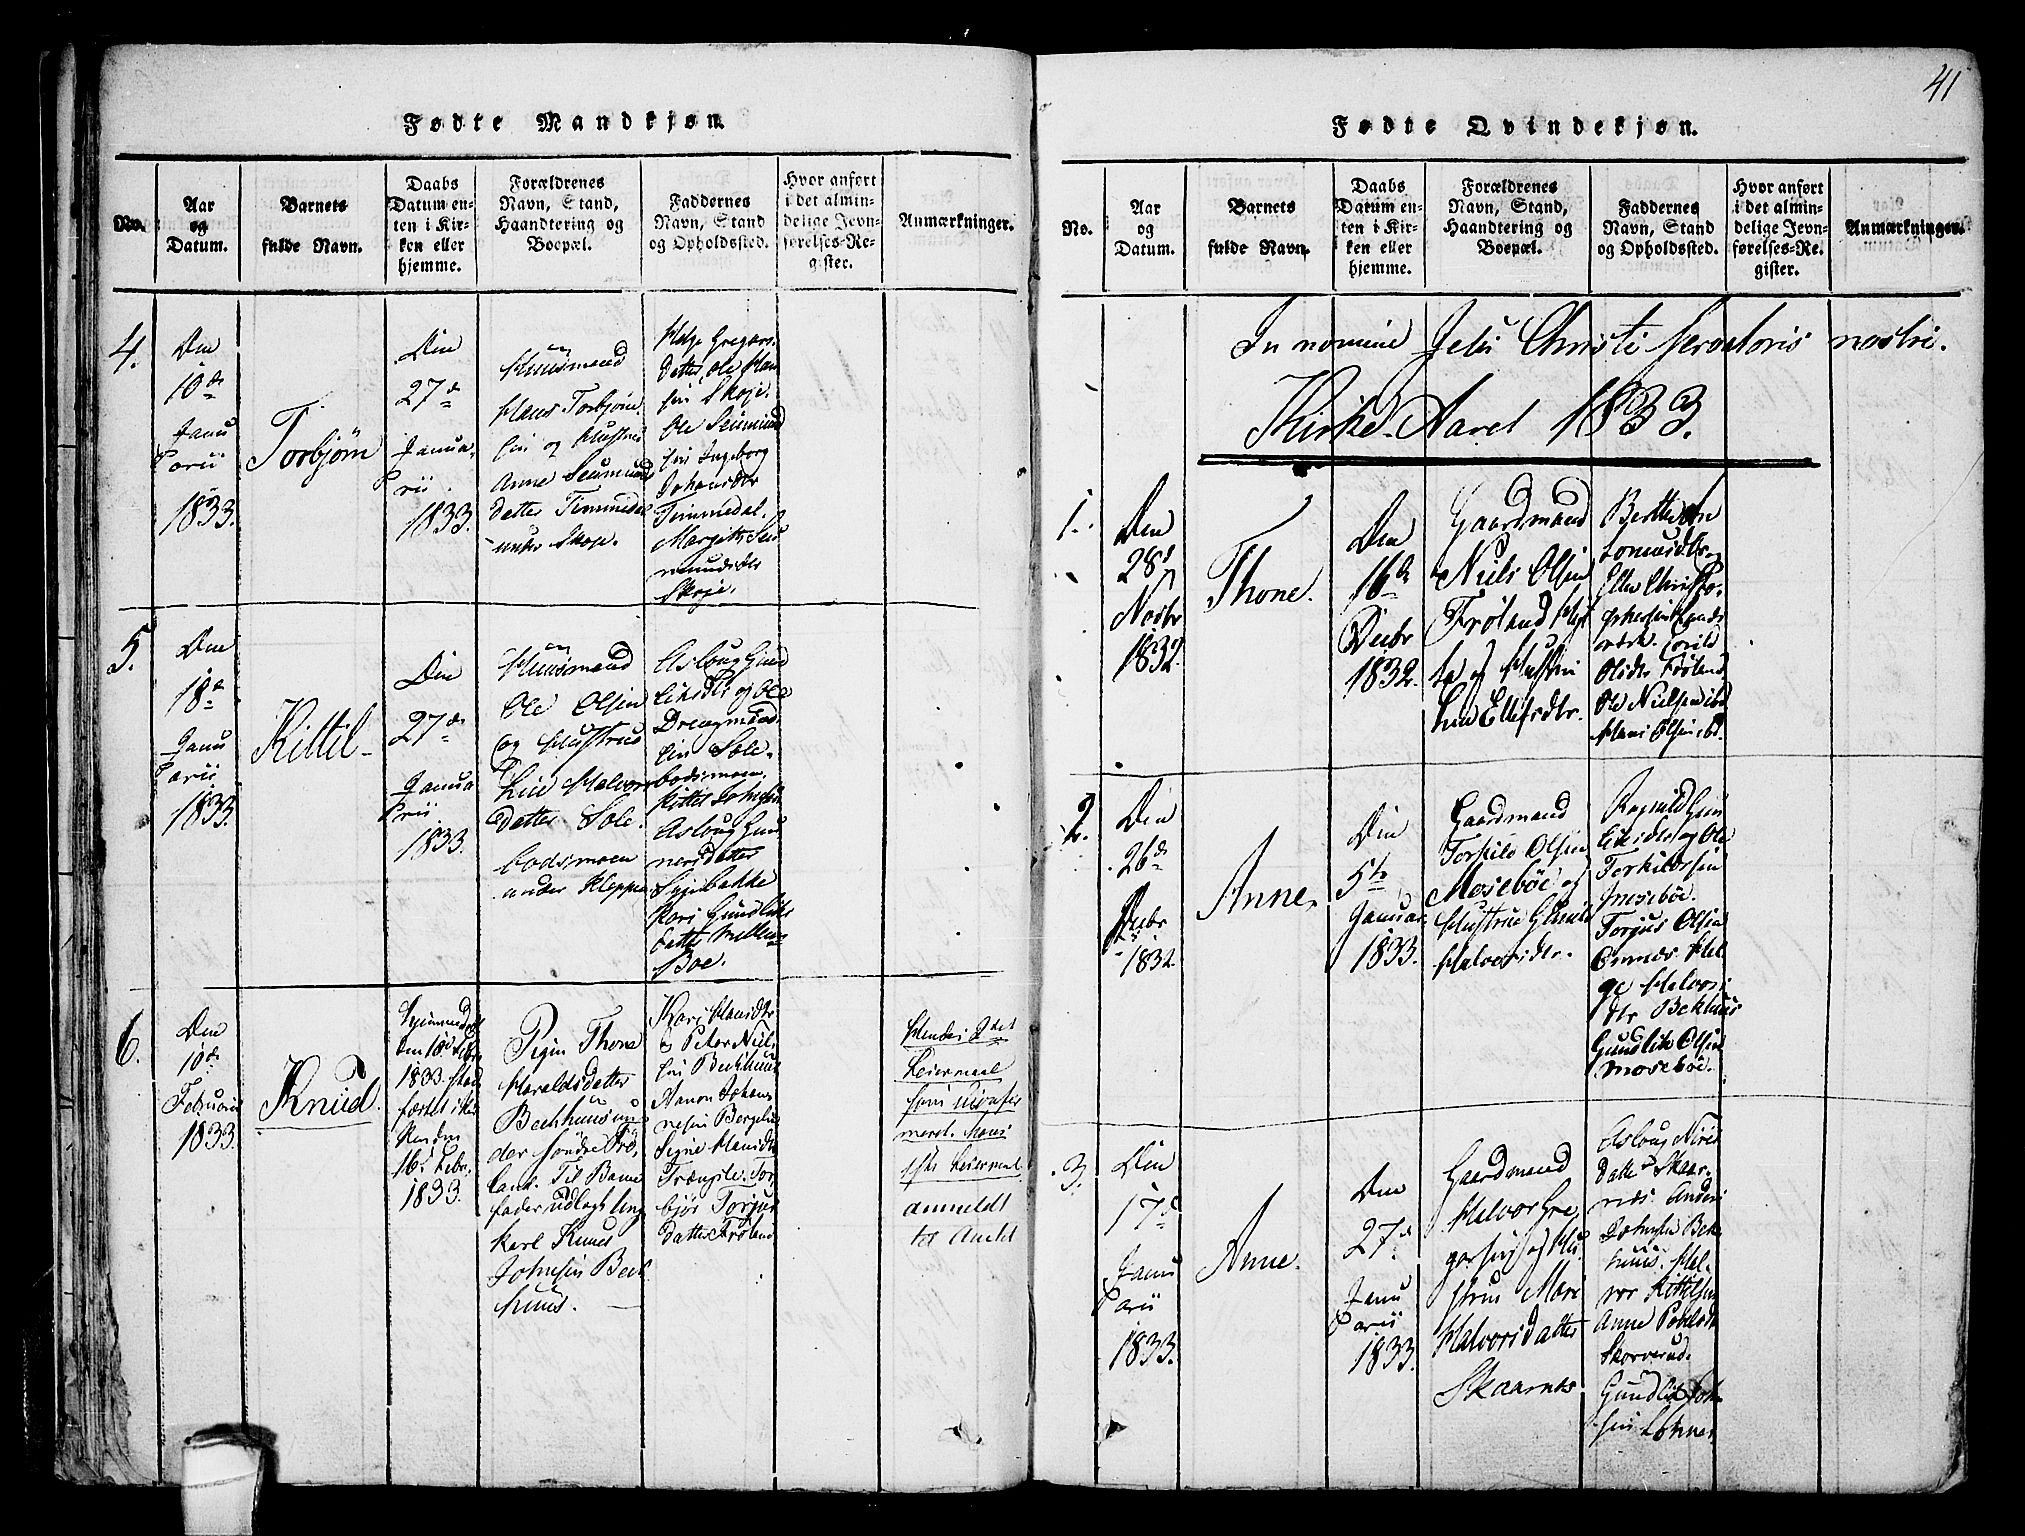 Fødte Mandkjøn.
No.
Aar
og
Datum.
Barnets
fulde Navn.
Daabs
Datum en-
ten i Kir-
ken eller
hjemme.
Forældrenes
Navn, Stand,
Haandtering og
Boepæl.
Faddernes
Navn, Stand
og Opholdssted.
Hvor anført
i det almin-
delige Jevn-
førelses-Re-
gister.
Anmærkninger.
4.
Den
10de
Janu
arii
1833.
Torbjørn
Den
27de
Janua-
rii
1833.
Huusmand
Hans Torbjørn
sen og Hustrue
Anne Seumunds
datter Timmedal
under Skoje.
Helje Gregars
datter, Ole Han
sen Skoje.
Ole Seumund
sen Ingeborg
Johansdtr
Timmedal.
Margithe Seu
mundsdtr
Skoje.
5.
Den
18de
Janu
arii
1833.
Kittil
Den
27de
Janua
rii
1833.
Huusmand
Ole Olsen
og Hustrue
Live Halvors
datter Sole-
bodsmoen
under Kleppen
Asloug Gund
liksdtr og Ole
Drengmand
sen Sole-
bodsmoen,
Kittel Johnsen
Asloug Gun
nersdatter
bakke
Kari Gundliks
datter Mellem
Boe.
6.
Den
10de
Februarii
1833.
Knud.
Hjemmedøbt
den 18d Febr
1833. Stad
fæstet i Kir
ken den
16d Febr.
1833.
Pigen Thone
Haraldsdatter
Beckhuus un
der Søndre Frø
land. Til Barne
fader udlagt Ung
karl Knud
Johnsen Beck
huus.
Kari Hansdtr
Peter Niel
sen Beckhuus
Aanon Johan
nesen Bergeland
Signe Hansdtr
Trængsle. Tor
bjør Torjus
datter Frøland
Hendes 2det
Leiermaal
som
Hans
1ste Leiermaal.
anmeldt
til Amtet
41
Fødte Qvindekjøn.
No.
Aar
og
Datum.
Barnets
fulde Navn.
Daabs
Datum en-
ten i Kir-
ken eller
hjemme.
Forældrenes
Navn, Stand,
Haandtering og
Boepæl.
Faddernes
Navn, Stand
og Opholdssted.
Hvor anført
i det almin-
delige Jevn-
førelses-Re-
gister.
Anmærkninger.
In nomine Jesu Christi Servatoris nostri.
Kirke-Aaret 1833.
1.
Den
28d
Novbr
1832.
Thone.
Den
16de
Decbr
1832.
Gaardmand
Niels Olsen
Frøland
og Hustrue
Live Ellefsdtr.
Olsdtr Frøland
Ole Nielsen ibd
Hans Olsen ibd.
2.
Den
26de
Decbr
1832.
Anne,
Den
5te
Januar
1833.
Gaardmand
Torkild Olsen
Mosebøe og
Hustrue Gunild
Halvorsdtr.
Ragnild Gun
liksdtr og Ole
Torkildsen
Mosebøe.
Torjus Olsen
Omnes. Hel
ge Halvors
dtr Bekhuus
Gundlik Olsen
Mosebøe.
3.
Den
17d
Janu
arii
1833.
Anne.
Den
27d
Janu
arii
1833.
Gaardmand
Halvor Gre
garsen og Hu
strue Mari
Halvorsdatter
Skaarnes
Asloug Niels
datter Skaar-
næs. Anders
Johnsen Bek
huus. Hal-
vor Kittelsen
Anne Povelsdtr
Skorverud.
Gundlik John
sen Lohnes.